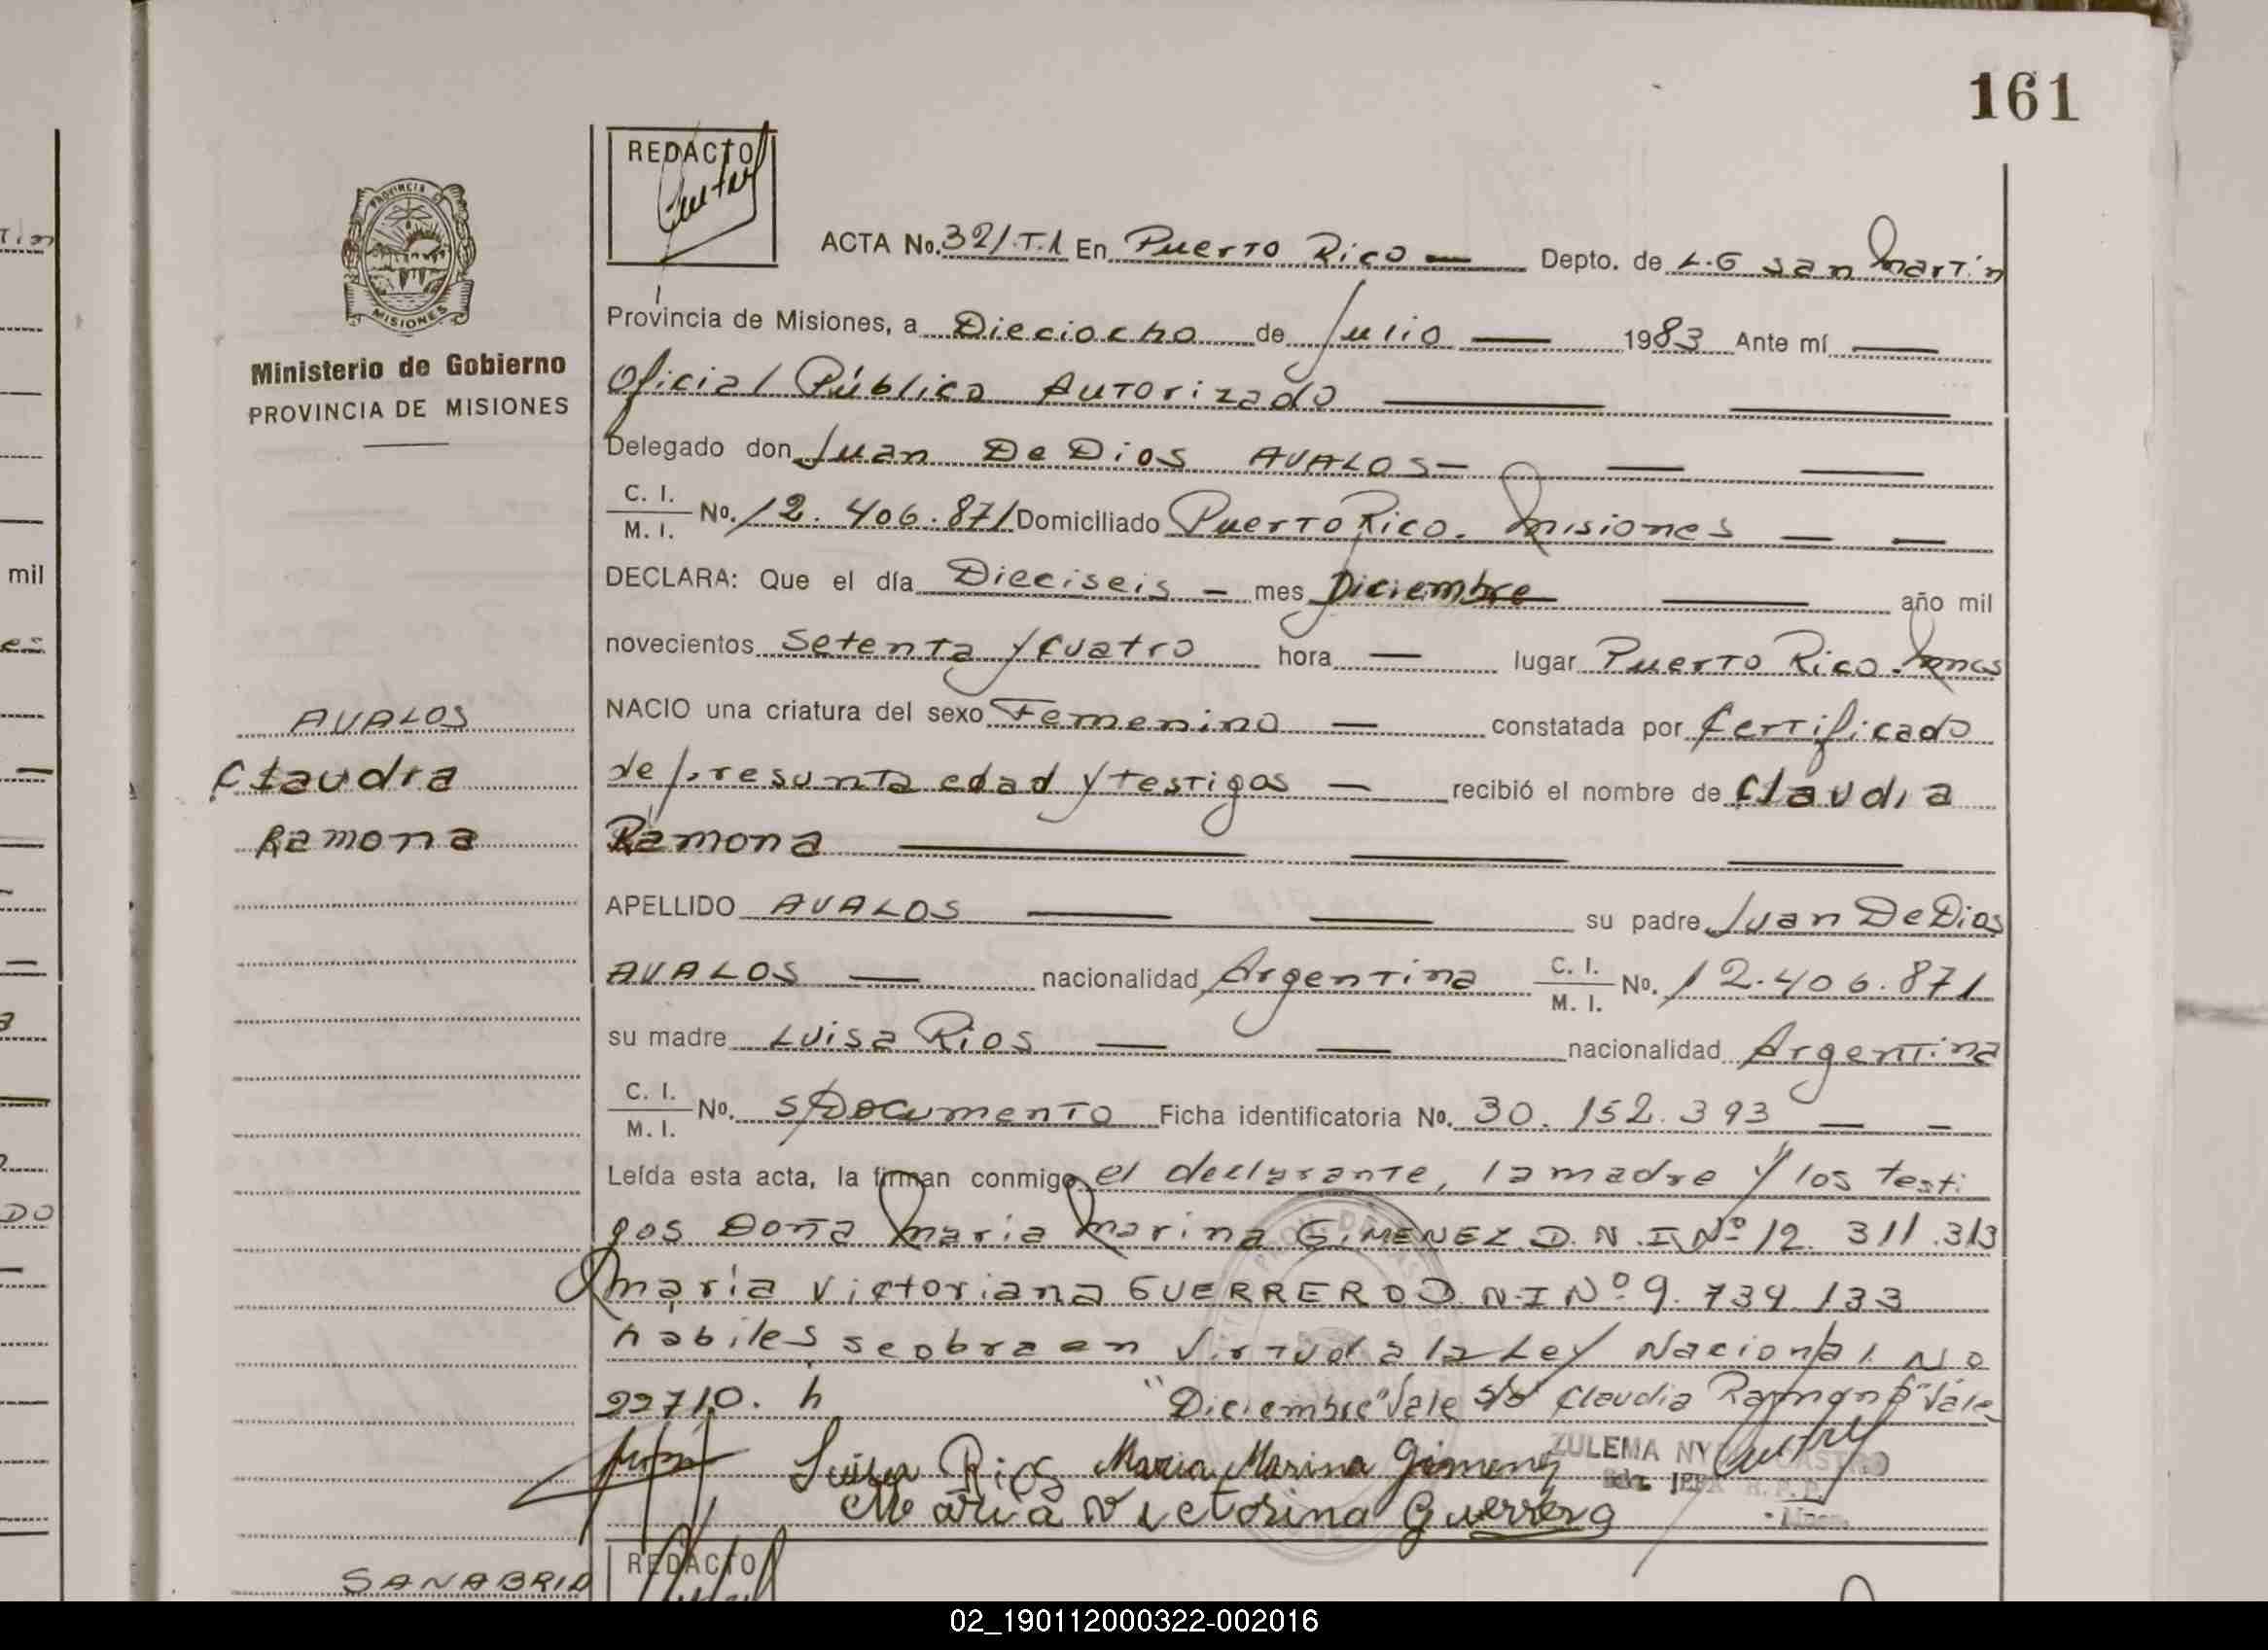 161
REDACTO
ACTA No. 321.T.1 En Puerto Rico — Depto. de L.G San Martín
PROVINCIA DE
MISIONES
Ministerio de Gobierno
PROVINCIA DE MISIONES
Provincia de Misiones, a Dieciocho de Julio — 1983 Ante mí —
Oficial Público Autorizado — —
Delegado don Juan De Dios AVALOS — — —
C. I. / M. I. No. 12.406.871 Domiciliado Puerto Rico. Misiones — —
DECLARA: Que el día Dieciseis — mes Diciembre — año mil
novecientos Setenta y Cuatro hora — lugar Puerto Rico. Mnes
NACIO una criatura del sexo Femenino — constatada por Certificado
de presunta edad y testigos — recibió el nombre de Claudia
Ramona — — —
APELLIDO AVALOS — — su padre Juan De Dios
AVALOS — nacionalidad Argentina C. I. / M. I. No. 12.406.871
su madre Luisa Rios — — nacionalidad Argentina
C. I. / M. I. No. s/Documento Ficha identificatoria No. 30.152.393 — —
Leída esta acta, la firman conmigo el declarante, la madre y los testi
gos Doña Maria Marina GIMENEZ D.N.I Nº 12.311.313
Maria Victoriana GUERRERO D.N.I Nº 9.734.133
habiles se obra en Virtud a la Ley Nacional No
22710. h "Diciembre" Vale s/b Claudia Ramona" Vale
Luisa Rios Maria Marina Gimenez ZULEMA NY CASTRO
Maria Victorina Guerrero
AVALOS
Claudia
Ramona
SANABRIA
REDACTO
mil
DO
02_190112000322-002016